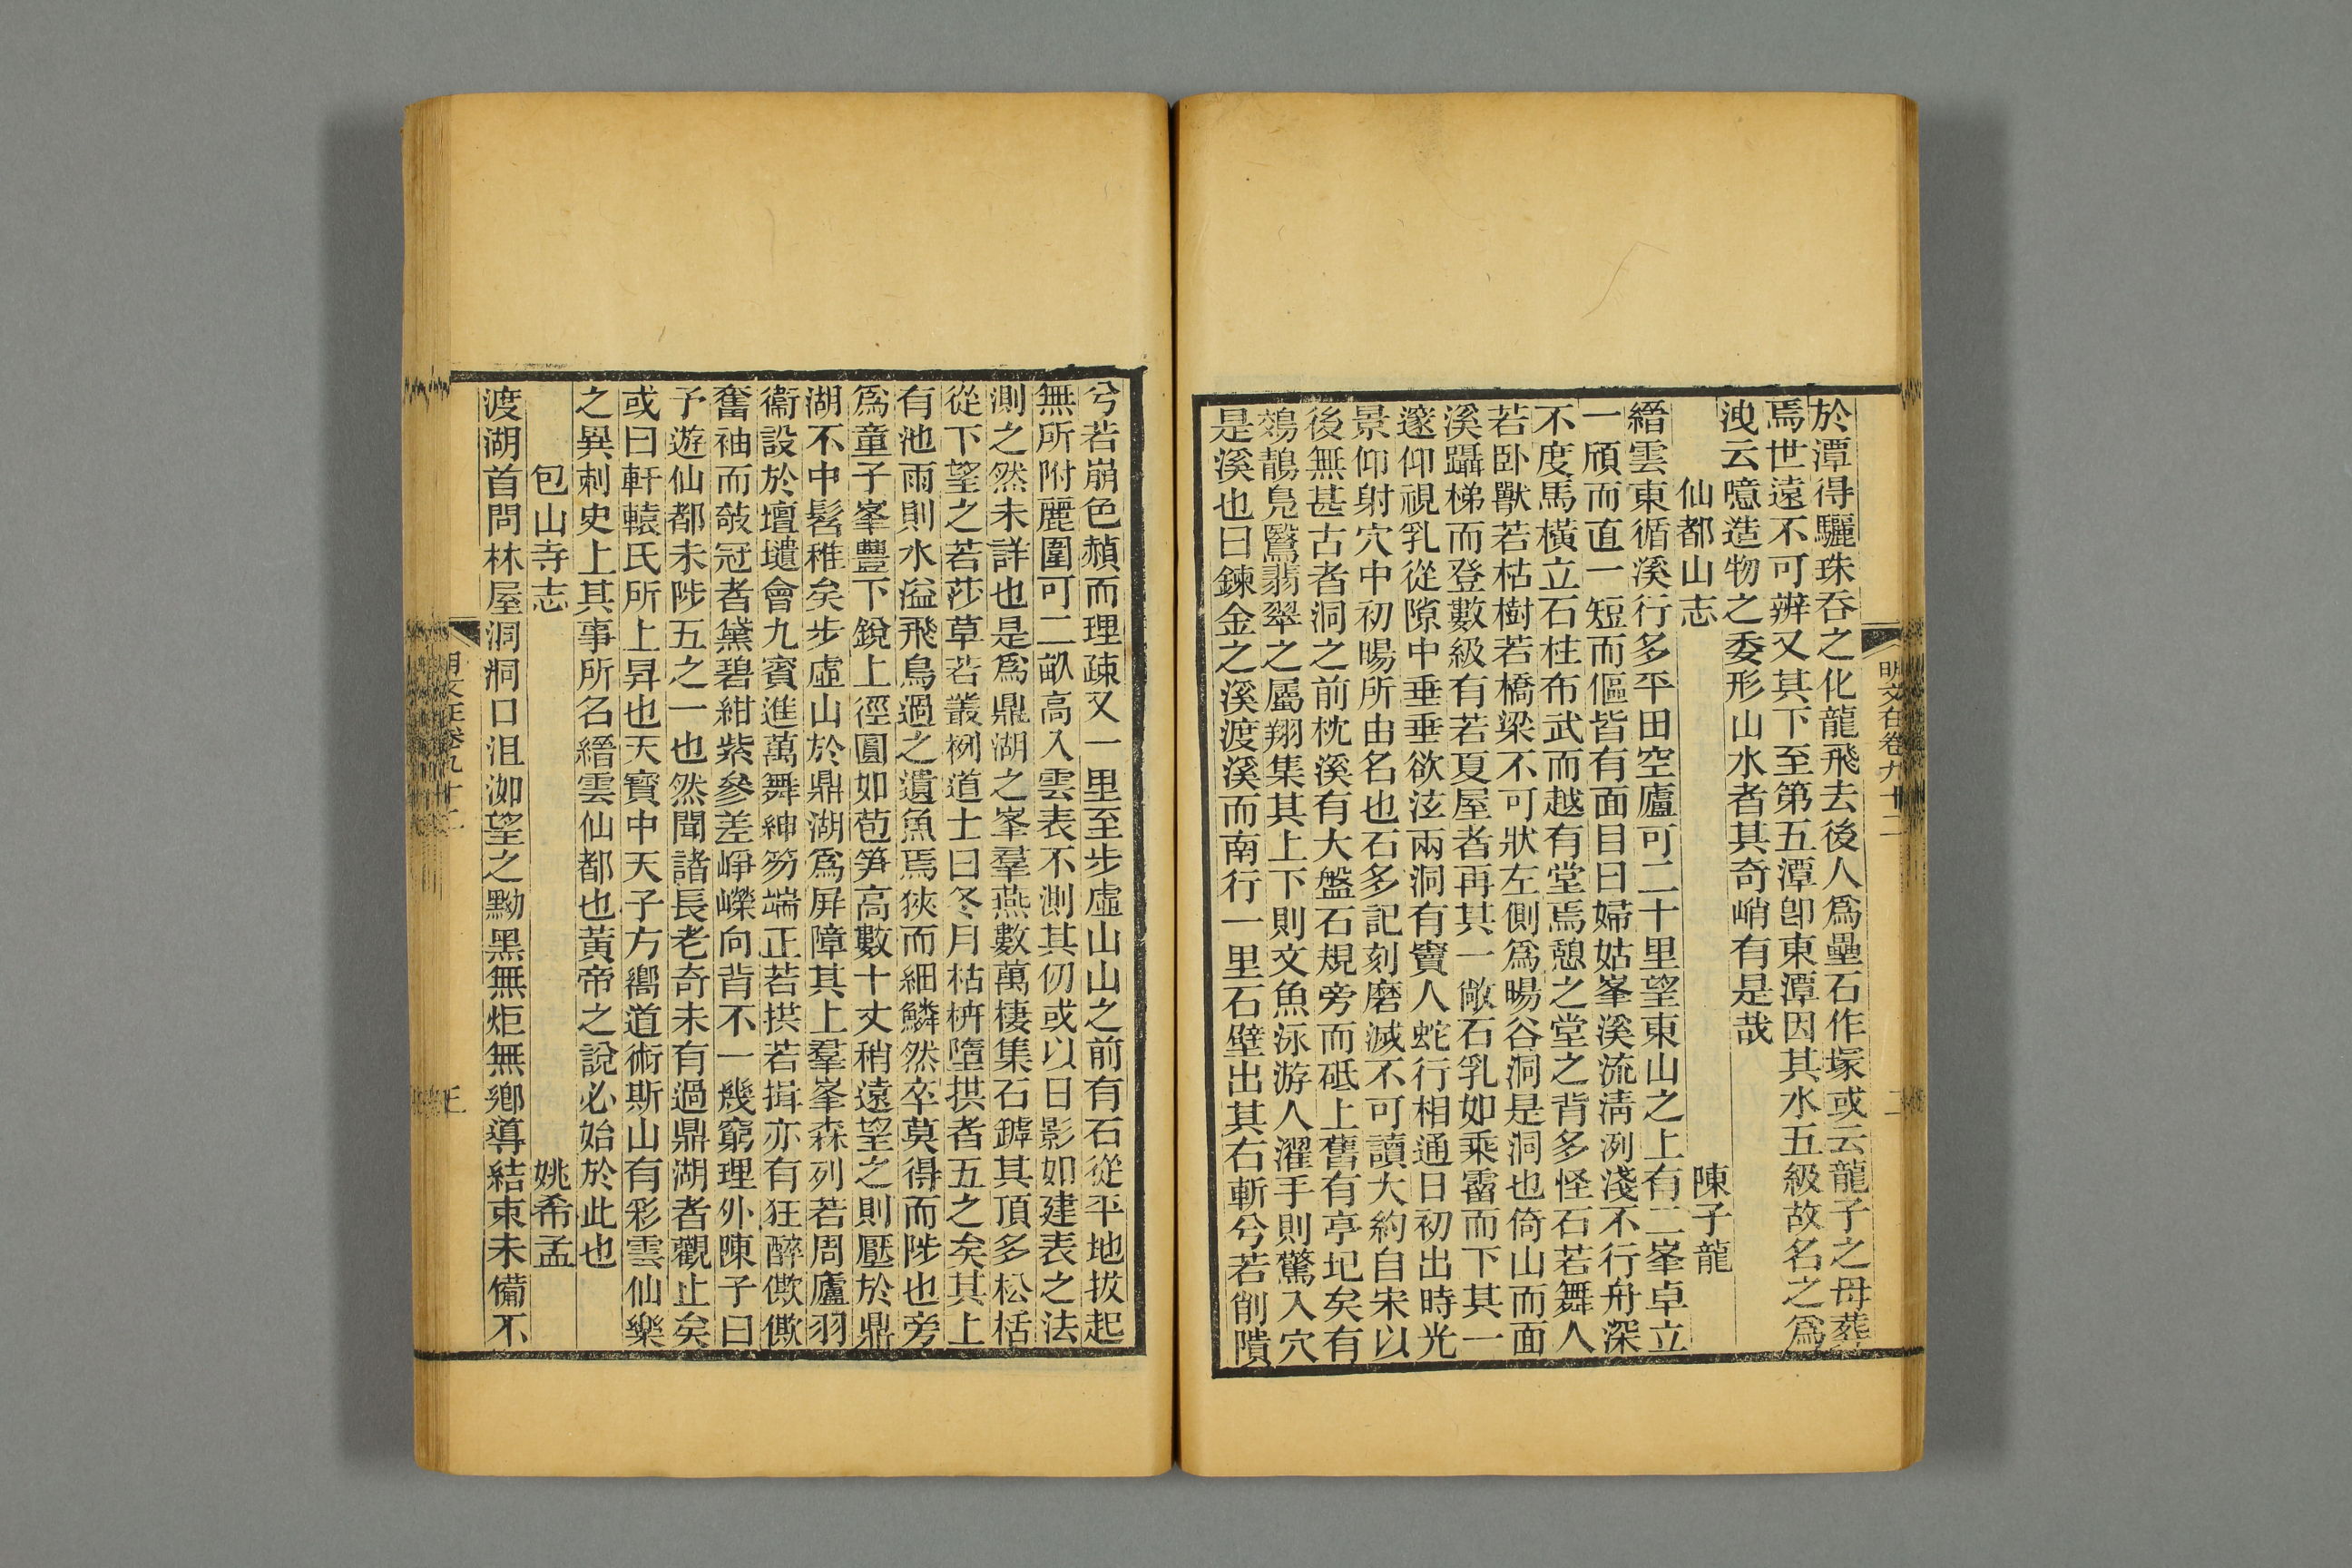 明文在卷九十二
二
於潭得驪珠吞之化龍飛去後人爲壘石作塚或云龍子之母葬
焉世遠不可辨又其下至第五潭卽東潭因其水五級故名之爲
洩云噫造物之委形山水者其奇峭有是哉
仙都山志 陳子龍
縉雲東循溪行多平田空廬可二十里望東山之上有二峯卓立
一頎而直一短而傴皆有面目曰婦姑峯溪流淸冽淺不行舟深
不度馬橫立石柱布武而越有堂焉憩之堂之背多怪石若舞人
若卧獸若枯樹若橋梁不可狀左側爲暘谷洞是洞也倚山而面
溪躡梯而登數級有若夏屋者再其一敞石乳如乘霤而下其一
邃仰視乳從隙中垂垂欲泫兩洞有竇人蛇行相通日初出時光
景仰射穴中初暘所由名也石多記刻磨滅不可讀大約自宋以
後無甚古者洞之前枕溪有大盤石規旁而砥上舊有亭圮矣有
鵁鶄鳧鷖翡翠之屬翔集其上下則文魚泳游人濯手則驚入穴
是溪也曰鍊金之溪渡溪而南行一里石壁出其右斬兮若削隤
兮若崩色赬而理疎又一里至步虛山山之前有石從平地拔起
無所附麗圍可二畝高入雲表不測其仞或以日影如建表之法
測之然未詳也是爲鼎湖之峯羣燕數萬棲集石罅其頂多松栝
從下望之若莎草若叢栵道士曰冬月枯枿墮拱者五之矣其上
有池雨則水溢飛鳥過之遺魚焉狹而細鱗然卒莫得而陟也旁
爲童子峯豐下銳上徑圓如苞笋高數十丈稍遠望之則壓於鼎
湖不中髫稚矣步虛山於鼎湖爲屛障其上羣峯森列若周廬羽
衞設於壇壝會九賓進萬舞紳笏端正若拱若揖亦有狂醉僛僛
奮袖而攲冠者黛碧紺紫參差崢嶸向背不一幾窮理外陳子曰
予遊仙都未陟五之一也然聞諸長老奇未有過鼎湖者觀止矣
或曰軒轅氏所上昇也天寶中天子方嚮道術斯山有彩雲仙樂
之異刺史上其事所名縉雲仙都也黃帝之說必始於此也
包山寺志 姚希孟
渡湖首問林屋洞洞口沮洳望之黝黑無炬無鄕導結束未備不
明文在卷九十二
三